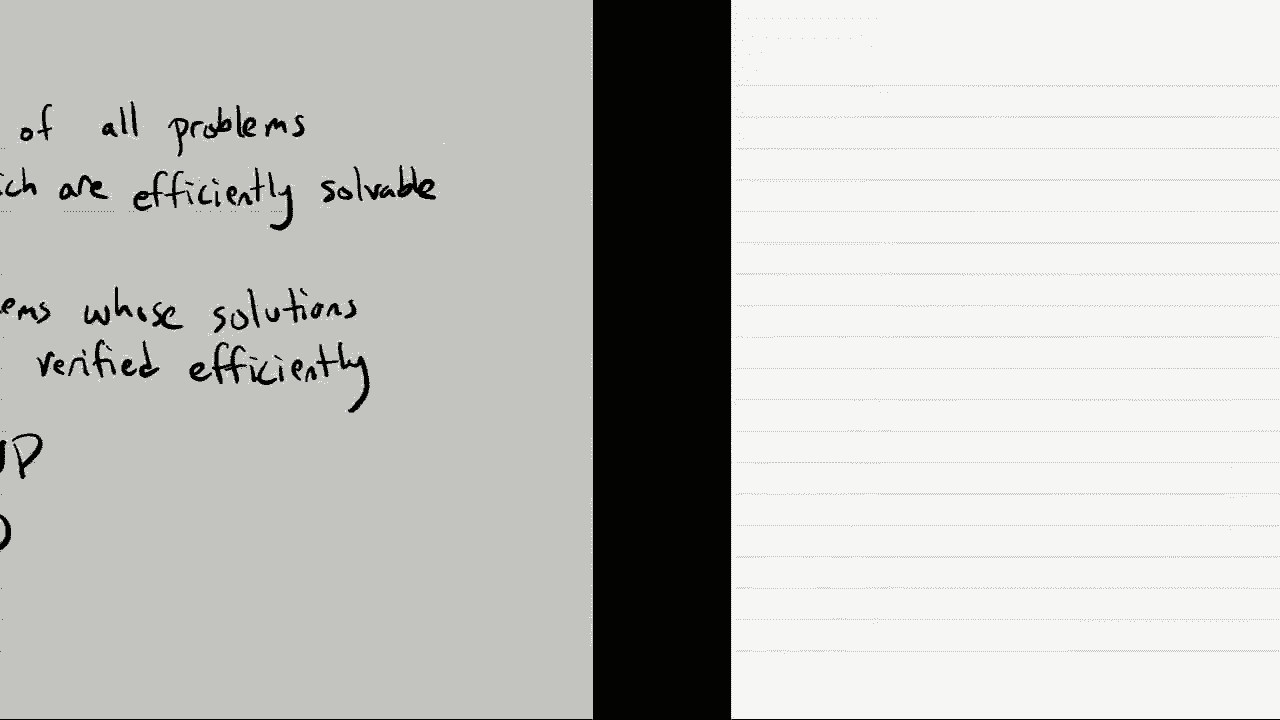 of all problems
ich are efficiently solvable
ems whose solutions
verified efficiently
P